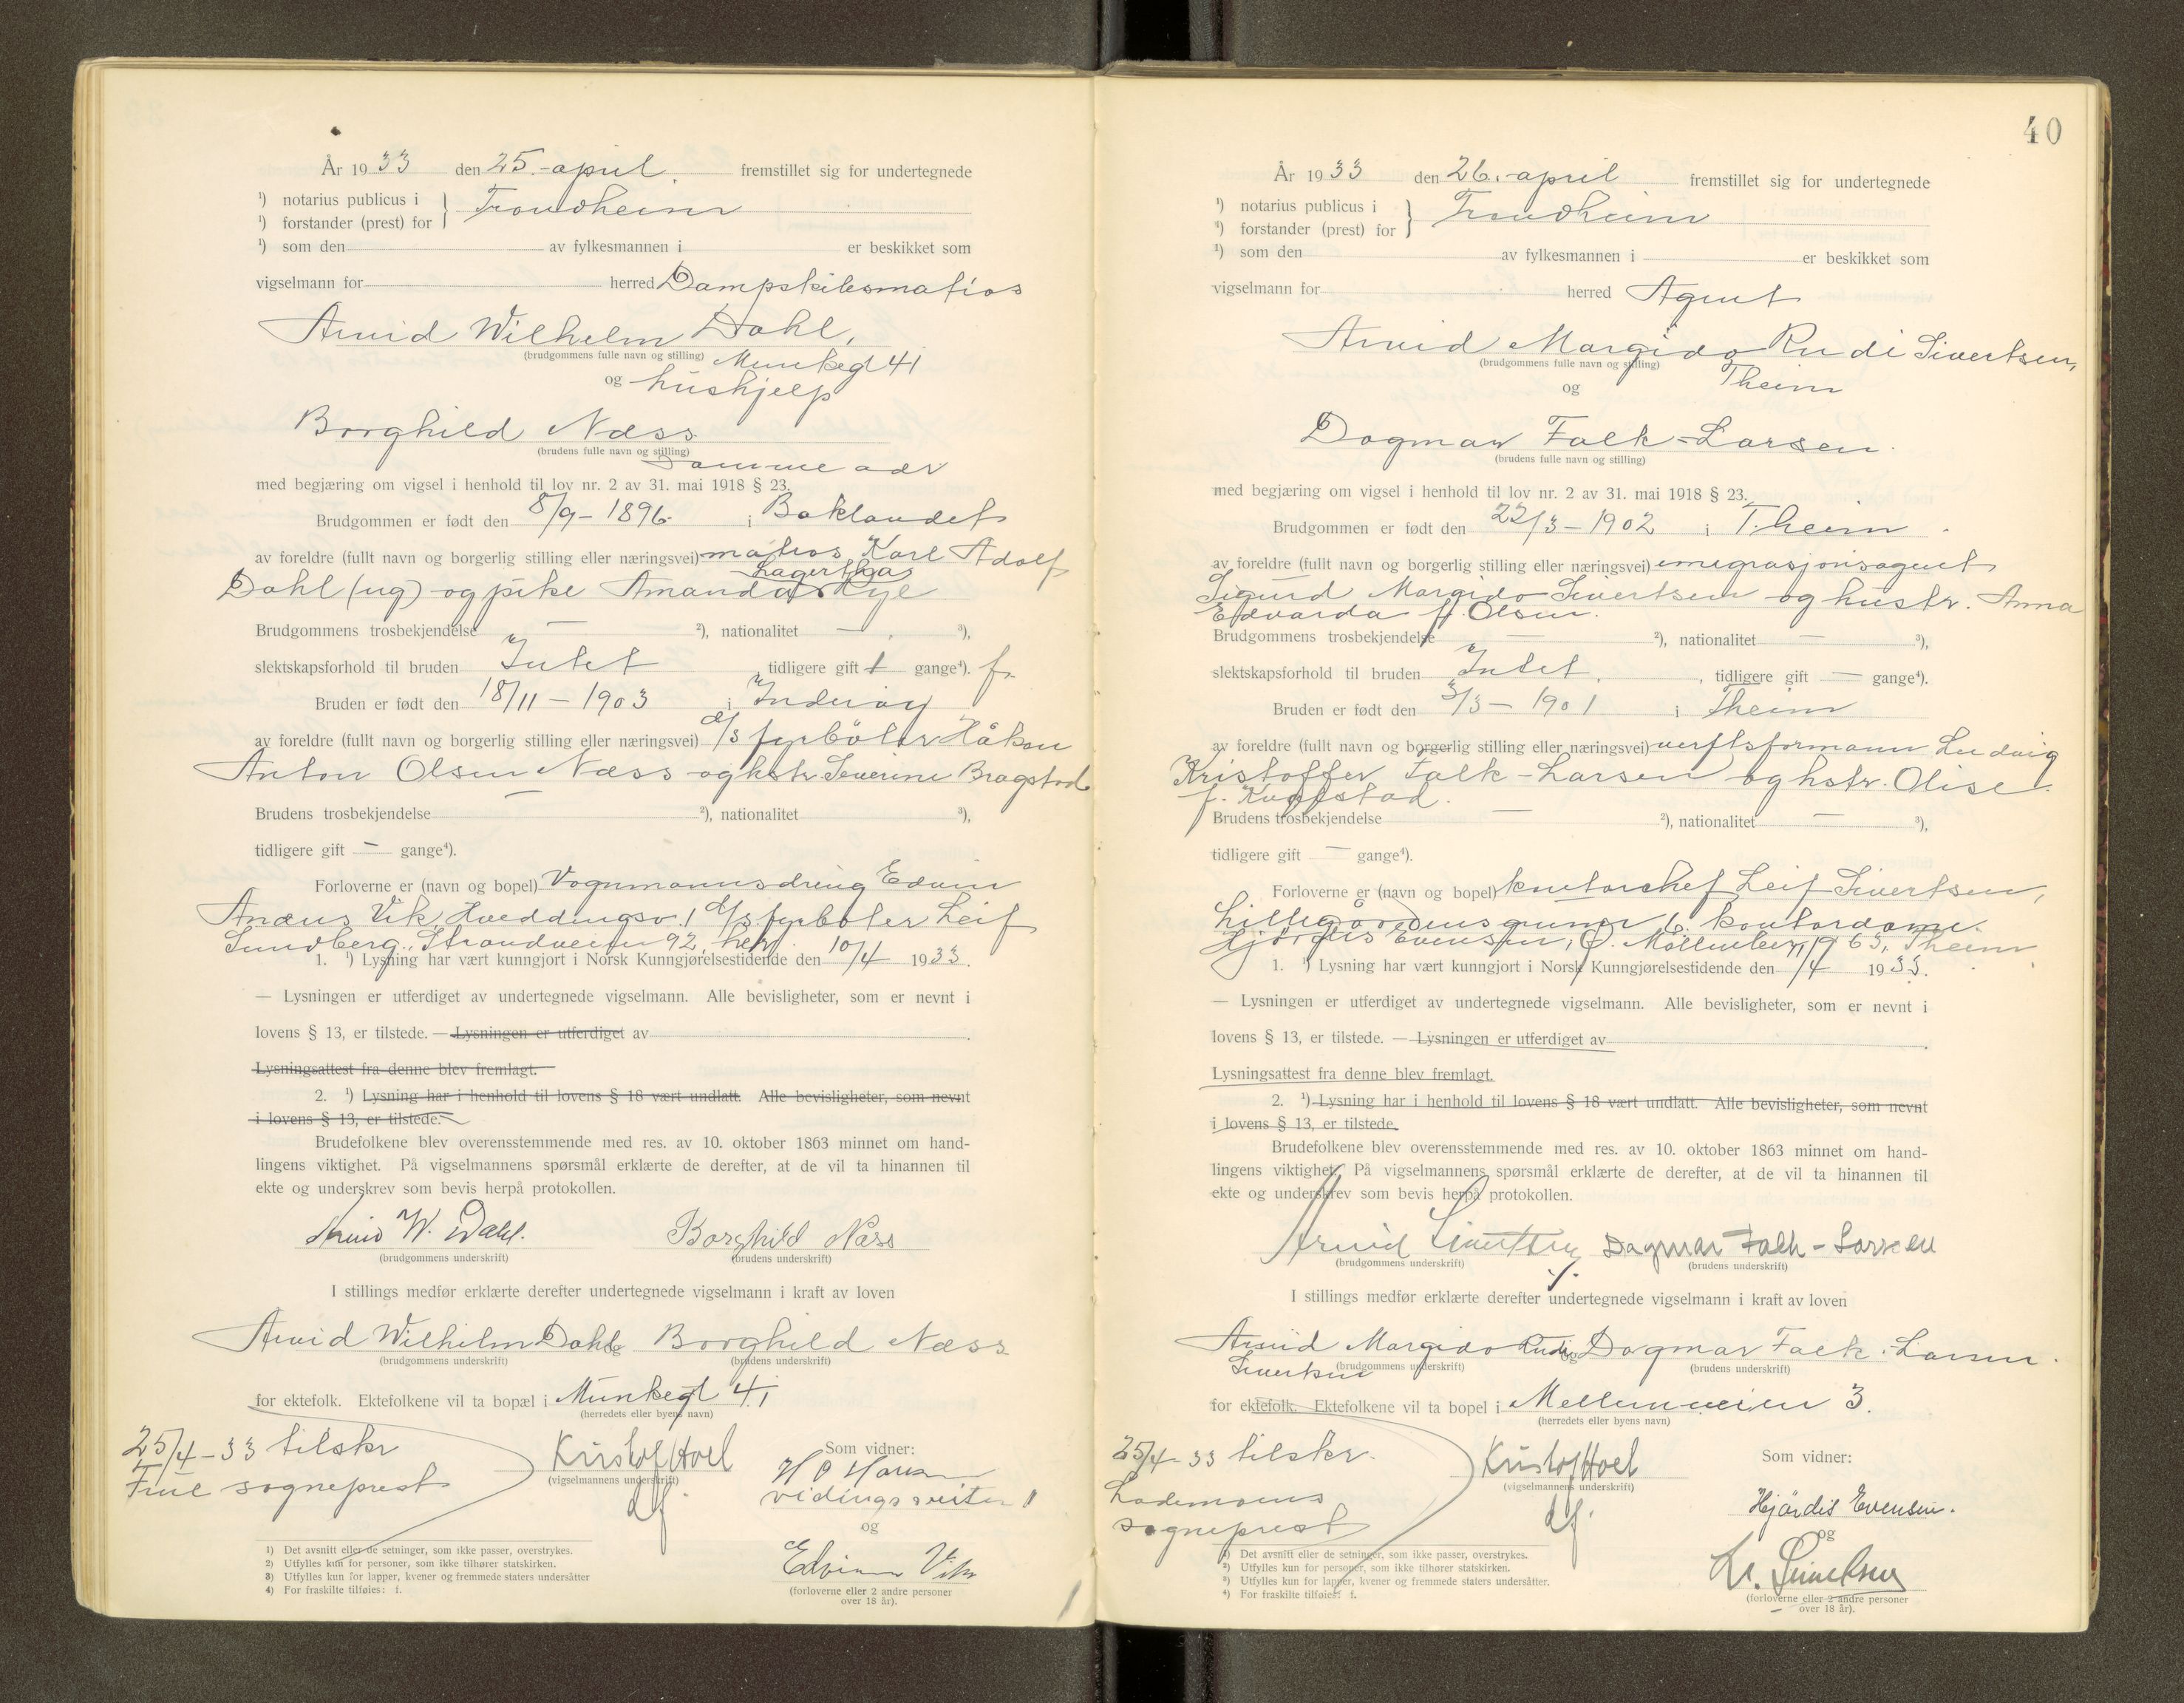 År 1933 den 25.-april. fremstillet sig for undertegnede
¹) notarius publicus i
¹) forstander (prest) for } Trondheim
¹) som den av fylkesmannen i er beskikket som
vigselmann for herred Dampskibsmatros
Arvid Wilhelm Dahl,
(brudgommens fulle navn og stilling) Munkegt 41
og hushjelp
Borghild Næss
(brudens fulle navn og stilling)
Samme adr
med begjæring om vigsel i henhold til lov nr. 2 av 31. mai 1918 § 23.
Brudgommen er født den 8/9-1896. i Baklandet
av foreldre (fullt navn og borgerlig stilling eller næringsvei) matros Karl Adolf
Lagertha
Dahl (ug) og pike Amanda Rye
Brudgommens trosbekjendelse — ²), nationalitet — ³),
slektskapsforhold til bruden Intet, tidligere gift 1 gange⁴). f.
Bruden er født den 18/11 - 1903 i Inderøy
av foreldre (fullt navn og borgerlig stilling eller næringsvei) d/s fyrbøter Håkon
Anton Olsen Næss og hstr Severine Bragstad
Brudens trosbekjendelse — ²), nationalitet ³),
tidligere gift — gange⁴).
Forloverne er (navn og bopel) Vognmannsdreng Edvin
Vik, 1 d/s fyrbøter Leif
Sundberg, Strandveien 92, her.
1. ¹) Lysning har vært kunngjort i Norsk Kunngjørelsestidende den 10/4 1933.
— Lysningen er utferdiget av undertegnede vigselmann. Alle bevisligheter, som er nevnt i
lovens § 13, er tilstede. — Lysningen er utferdiget av
Lysningsattest fra denne blev fremlagt.
2. ¹) Lysning har i henhold til lovens § 18 vært undlatt. Alle bevisligheter, som nevnt
i lovens § 13, er tilstede.
Brudefolkene blev overensstemmende med res. av 10. oktober 1863 minnet om hand-
lingens viktighet. På vigselmannens spørsmål erklærte de derefter, at de vil ta hinannen til
ekte og underskrev som bevis herpå protokollen.
Arvid W. Dahl. Borghild Næss
(brudgommens underskrift) (brudens underskrift)
I stillings medfør erklærte derefter undertegnede vigselmann i kraft av loven
Arvid Wilhelm Dahl og Borghild Næss
(brudgommens underskrift) (brudens underskrift)
for ektefolk. Ektefolkene vil ta bopæl i Munkegt 41
(herredets eller byens navn)
25/4-33 tilskr
Frue sogneprest
Kristof Hoel
(vigselmannens underskrift)
df.
Som vidner:
H O
og
Edvin Vik
(forloverne eller 2 andre personer
over 18 år).
1) Det avsnitt eller de setninger, som ikke passer, overstrykes.
2) Utfylles kun for personer, som ikke tilhører statskirken.
3) Utfylles kun for lapper, kvener og fremmede staters undersåtter
4) For fraskilte tilføies: f.
40
År 1933 den 26.-april fremstillet sig for undertegnede
¹) notarius publicus i
¹) forstander (prest) for } Trondheim
¹) som den av fylkesmannen i er beskikket som
vigselmann for herred Agent
Arvid Margido Rudi Sivertsen,
(brudgommens fulle navn og stilling)
og Theim
Dagmar Falk-Larsen.
(brudens fulle navn og stilling)
med begjæring om vigsel i henhold til lov nr. 2 av 31. mai 1918 § 23.
Brudgommen er født den 22/3-1902 i T.heim.
av foreldre (fullt navn og borgerlig stilling eller næringsvei) emegrasjonsagent
Sigurd Margido Sivertsen og hustr. Anna
Edvarda f. Olsen.
Brudgommens trosbekjendelse — ²), nationalitet — ³),
slektskapsforhold til bruden Intet, tidligere gift — gange⁴).
Bruden er født den 3/3 - 1901 i Theim
av foreldre (fullt navn og borgerlig stilling eller næringsvei) verftsformann Ludvig
Kristoffer Falk-Larsen og hstr. Olise
f.
Brudens trosbekjendelse — ²), nationalitet — ³),
tidligere gift — gange⁴).
Forloverne er (navn og bopel) kontorchef Leif Sivertsen,
Lillegårdens 6. kontordame
Hjørdis Evensen, Ø. Møllenberg 63, Theim
1. ¹) Lysning har vært kunngjort i Norsk Kunngjørelsestidende den 11/4 1933.
— Lysningen er utferdiget av undertegnede vigselmann. Alle bevisligheter, som er nevnt i
lovens § 13, er tilstede. — Lysningen er utferdiget av
Lysningsattest fra denne blev fremlagt.
2. ¹) Lysning har i henhold til lovens § 18 vært undlatt. Alle bevisligheter, som nevnt
i lovens § 13, er tilstede.
Brudefolkene blev overensstemmende med res. av 10. oktober 1863 minnet om hand-
lingens viktighet. På vigselmannens spørsmål erklærte de derefter, at de vil ta hinannen til
ekte og underskrev som bevis herpå protokollen.
Arvid Sivertsen Dagmar Falk-Larsen
(brudgommens underskrift) (brudens underskrift)
I stillings medfør erklærte derefter undertegnede vigselmann i kraft av loven
Arvid Margido Rudi og Dagmar Falk-Larsen.
Sivertsen (brudgommens underskrift) (brudens underskrift)
for ektefolk. Ektefolkene vil ta bopel i Mellemveien 3.
(herredets eller byens navn)
25/4-33 tilskr.
Lademoens
sogneprest
Kristof Hoel
(vigselmannens underskrift)
df.
Som vidner:
Hjørdis Evensen.
og
L. Sivertsen
(forloverne eller 2 andre personer
over 18 år).
¹) Det avsnitt eller de setninger, som ikke passer, overstrykes.
²) Utfylles kun for personer, som ikke tilhører statskirken.
³) Utfylles kun for lapper, kvener og fremmede staters undersåtter.
⁴) For fraskilte tilføies: f.